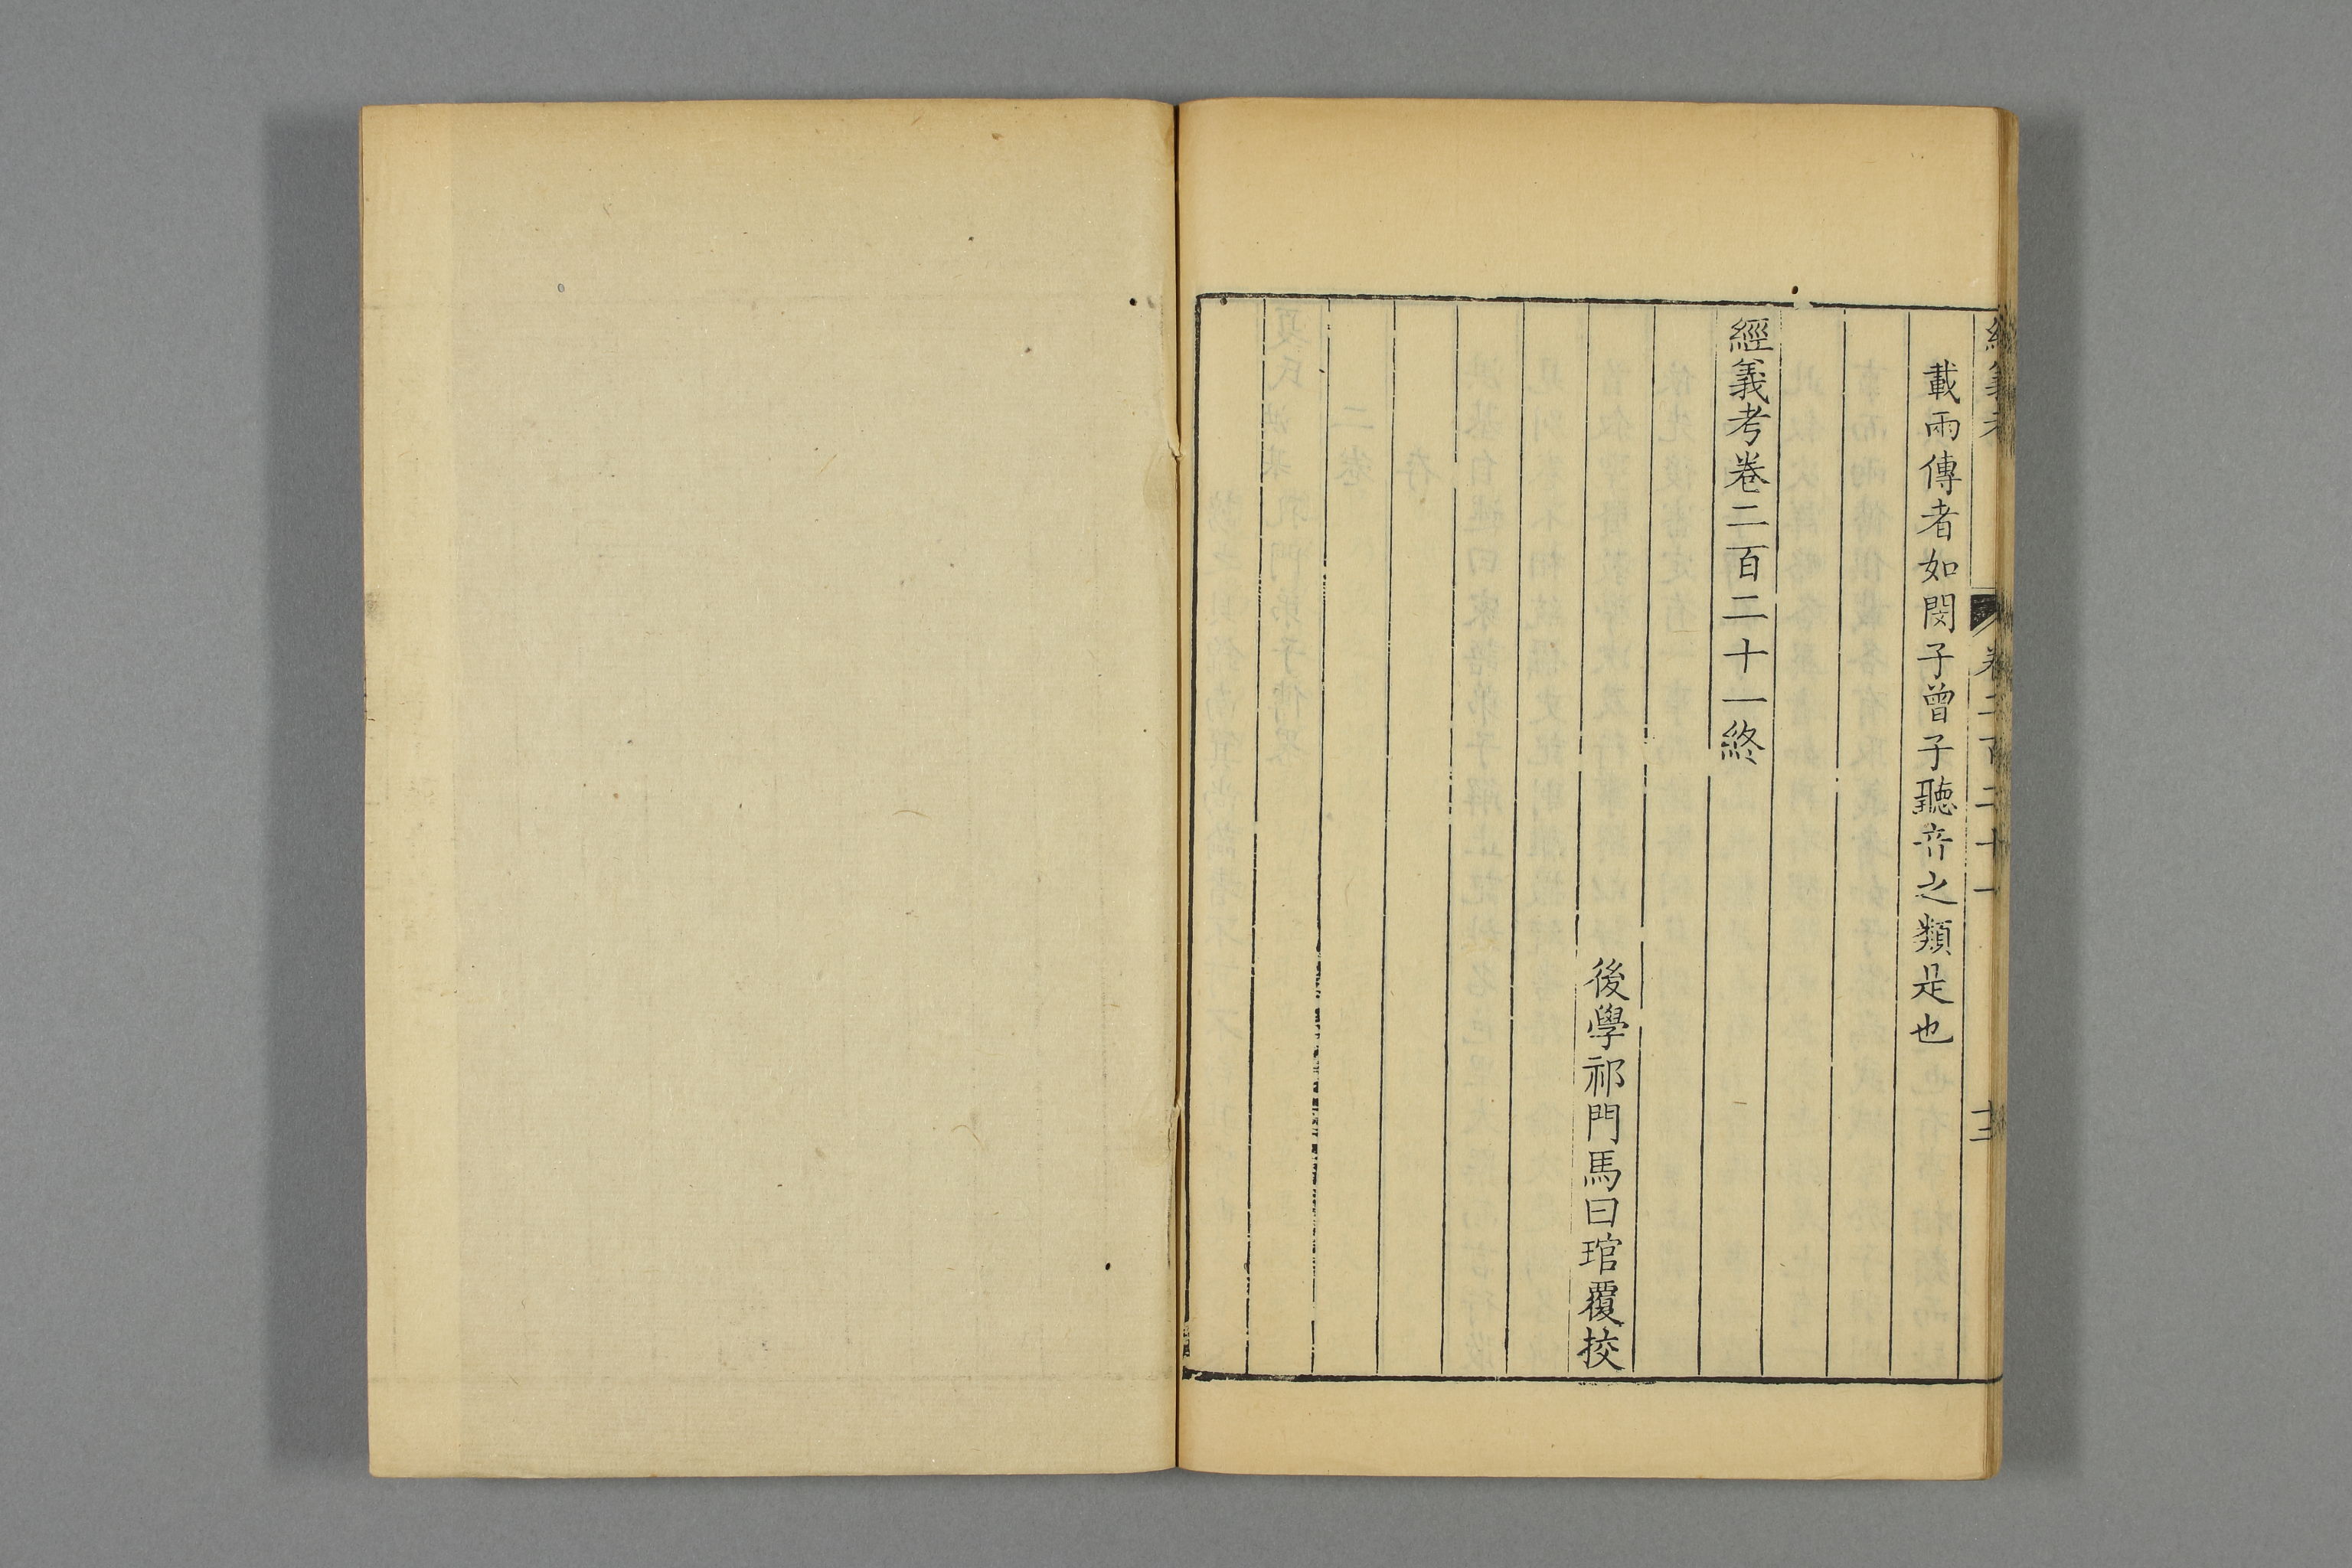 經義考
卷二百二十一
十三
載兩傳者如閔子曾子聽音之類是也
經義考卷二百二十一終
後學祁門馬曰琯覆挍